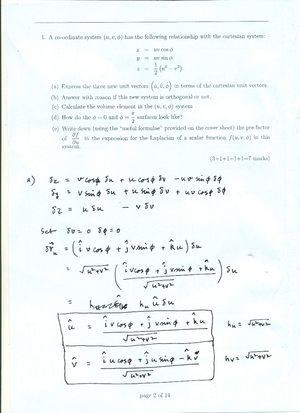 1. A co-ordinate system (u, v, ϕ) has the following relationship with the cartesian system:
x = uv cos ϕ
y = uv sin ϕ
z = 1/2 (u² − v²)
(a) Express the three new unit vectors (û, v̂, ϕ̂) in terms of the cartesian unit vectors.
(b) Answer with reason if this new system is orthogonal or not.
(c) Calculate the volume element in the (u, v, ϕ) system
(d) How do the ϕ = 0 and ϕ = π/2 surfaces look like?
(e) Write down (using the "useful formulae" provided on the cover sheet) the pre-factor
of ∂f/∂u in the expression for the Laplacian of a scalar function f(u, v, ϕ) in this
system.
(3+1+1+1+1=7 marks)
a) δx = v cosϕ δu + u cosϕ δv − uv sinϕ δϕ
δy = v sinϕ δu + u sinϕ δv + uv cosϕ δϕ
δz = u δu − v δv
Set δv = 0 δϕ = 0
δr⃗u = (î v cosϕ + ĵ v sinϕ + k̂ u) δu
= √u²+v² (î v cosϕ + ĵ v sinϕ + k̂ u)/√u²+v² δu
= hu û δu
û = (î v cosϕ + ĵ v sinϕ + k̂ u)/√u²+v² hu = √u²+v²
v̂ = (î u cosϕ + ĵ u sinϕ − k̂ v)/√u²+v² hv = √u²+v²
page 2 of 14